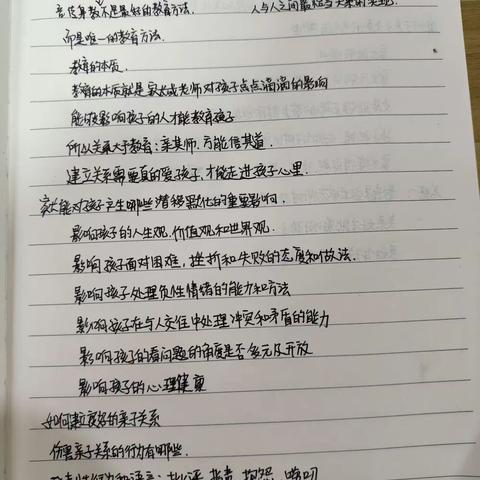 言传身教不是最好的教育方法.
人与人之间最短与
而是唯一的教育方法.
教育的本质.
教育的本质就是家长或老师对孩子点点滴滴的影响
能够影响孩子的人才能教育孩子
所以关系大于教育:亲其师.方能信其道.
建立关系需要真的爱孩子,才能走进孩子心里.
家长能对孩子产生哪些潜移默化的重要影响.
影响孩子的人生观.价值观和世界观.
影响孩子面对困难,挫折和失败的态度和做法.
影响孩子处理负性情绪的能力和方法
影响孩子在与人交往中处理冲突和矛盾的能力
影响孩子的看问题的角度是否多元及开放
影响孩子的心理健康
如何建立良好的亲子关系
伤害亲子关系的行为有哪些.
行为和语言:批评.指责.抱怨.唠叨